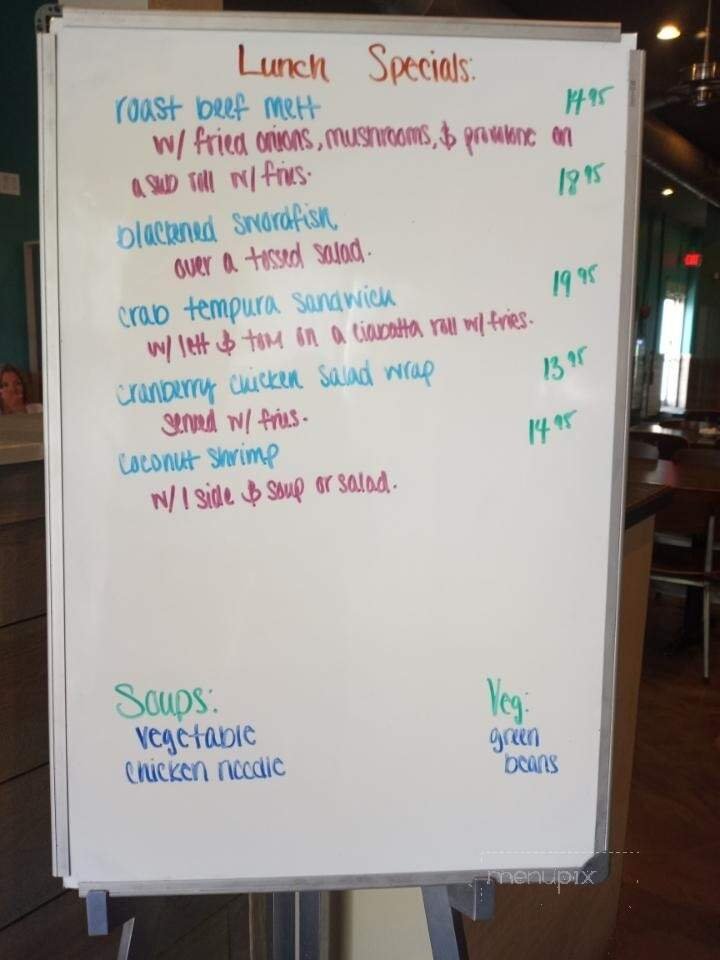 Lunch Specials:
roast beef melt 14 95
w/ fried onions, mushrooms, & provolone on
a sub roll w/ fries.
blackened swordfish 18 95
over a tossed salad.
crab tempura sandwich 19 95
w/ lett & tom on a ciabatta roll w/ fries.
cranberry chicken salad wrap 13 95
served w/ fries.
coconut shrimp 14 95
w/ 1 side & soup or salad.
Soups:
vegetable
chicken noodle
Veg:
green
beans
menupix